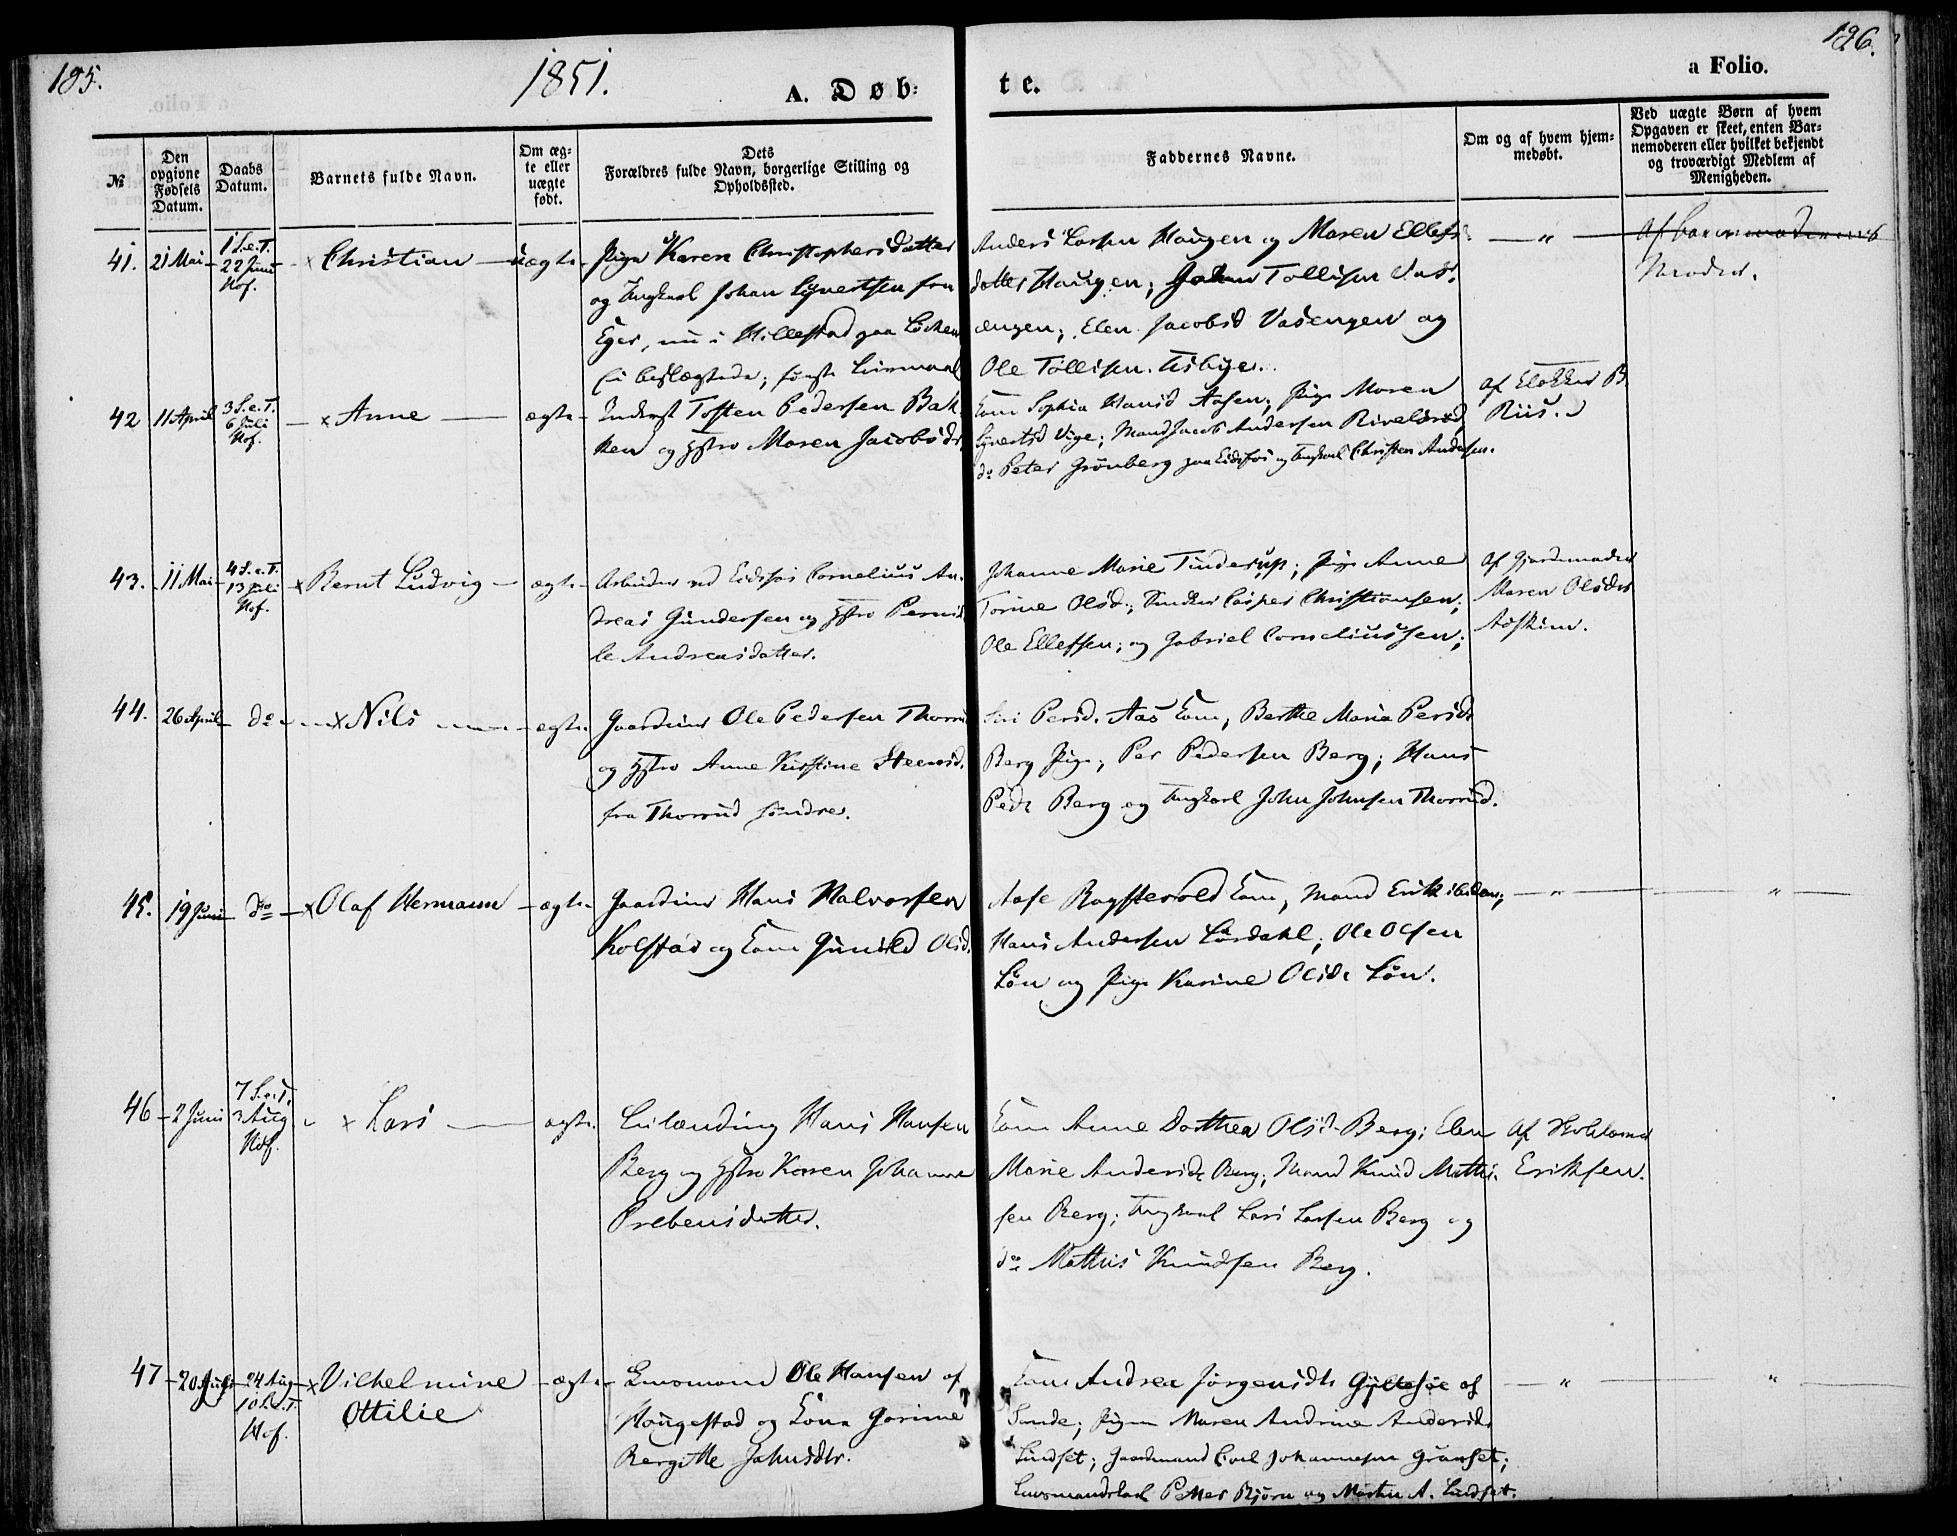 185.
1851.
A. Døb-
te.
a Folio.
186.
№
Den opgivne Fødsels Datum.
Daabs Datum.
Barnets fulde Navn.
Om ægte eller uægte født.
Dets Forældres fulde Navn, borgerlige Stilling og Opholdssted.
Faddernes Navne.
Om og af hvem hjemmedøbt.
Ved uægte Børn af hvem Opgaven er skeet, enten Barnemoderen eller hvilket bekjendt og troværdigt Medlem af Menigheden.
41. 21 Mai 1 S.e.T. 22 Juni Hof. x Christian uægte
Pige Karen Christophersdatter
og Ungkarl Johan Syvertsen fra
Eger, nu i Hillestad paa
beslægtede; første Leiermaal
Anders Larsen Haugen og Maren Ellefs
datter Haugen; Johan Tollisen Vas
engen; Elen Jacobsd Vasengen og
Ole Tollisen
Af barnemoderens
Moder.
42 11 April 3 S.e.T. 6 Juli Hof. x Anne ægte
Inderst Tosten Pedersen Bak
ken og Hstro Maren Jacobsdr
Kone Sophia Hansd Aasen; Pige Maren
Syvertsd Vige; Mand Jacob Andersen
do Peter Grønberg paa Eidsfos og Ungkarl Christen Andersen.
af Klokker B.
Riis.
43. 11 Mai 4 S.e.T. 13 Juli Hof. x Bernt Ludvig ægte
Arbeider ved Eidsfos Cornelius An-
dreas Gundersen og Hstro Pernil
le Andreasdatter.
Johanne Marie Tinderup; Pige Anne
Torine Olsd.; Casper Christiansen;
Ole Ellefsen; og Gabriel Corneliussen;
af Gjordemoder
Maren Olsdtr
Adskim.
44. 26 April do x Nils ægte
Gaardmr Ole Pedersen Thorru
og Hstro Anne Kirstine Steensd.
fra Thorrud søndre.
Siri Persd. Aas Kone, Berthe Maria Persdr
Berg Pige; Per Pedersen Berg; Hans
Pedr Berg og Ungkarl John Johnsen Thorrud.
45. 19 Juni do x Olaf Hermann ægte
Gaardmr Hans Halvorsen
Kolstad og Kone Gunild Olsd.
Aase Kone, Mand Erik ibidem;
Hans Andersen Lørdahl; Ole Olsen
Løn og Pige Karine Olsdr Løn.
46 2 Juni 7 S.e.T. 3 Aug Hof. x Lars ægte
Leilænding Hans Hansen
Berg og Hstro Karen Johanne
Prebensdatter.
Kone Anne Dorthea Olsd. Berg; Elen
Marie Andersdr Berg; Mand Knud Mathi-
sen Berg; Ungkarl Lars Larsen Berg og
do Mathis Knudsen Berg.
Af
Eriksen.
47 20 Juli 24 Aug 10 S.e.T. Hof. x Vilhelmine Ottilie ægte
Ole Hansen af
Haugestad og Kone Gorine
Bergitte Johnsdtr.
Kone Andrea Jørgensdtr af
Sande; Pigen Maren Andrine Andersdr
Lindset; Gaardmand Carl Johannesen Granset;
Petter Bjørn og Martin A. Lindset.